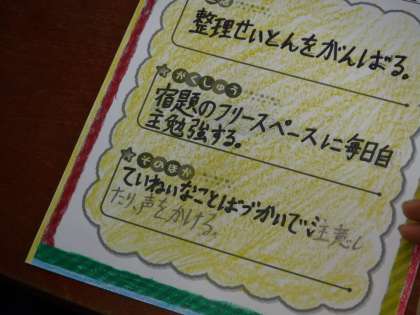 整理せいとんをがんばる。
がくしゅう
宿題のフリースペースに毎日自
主勉強する。
そのほか
ていねいなことばづかいで、注意し
たり、声をかける。